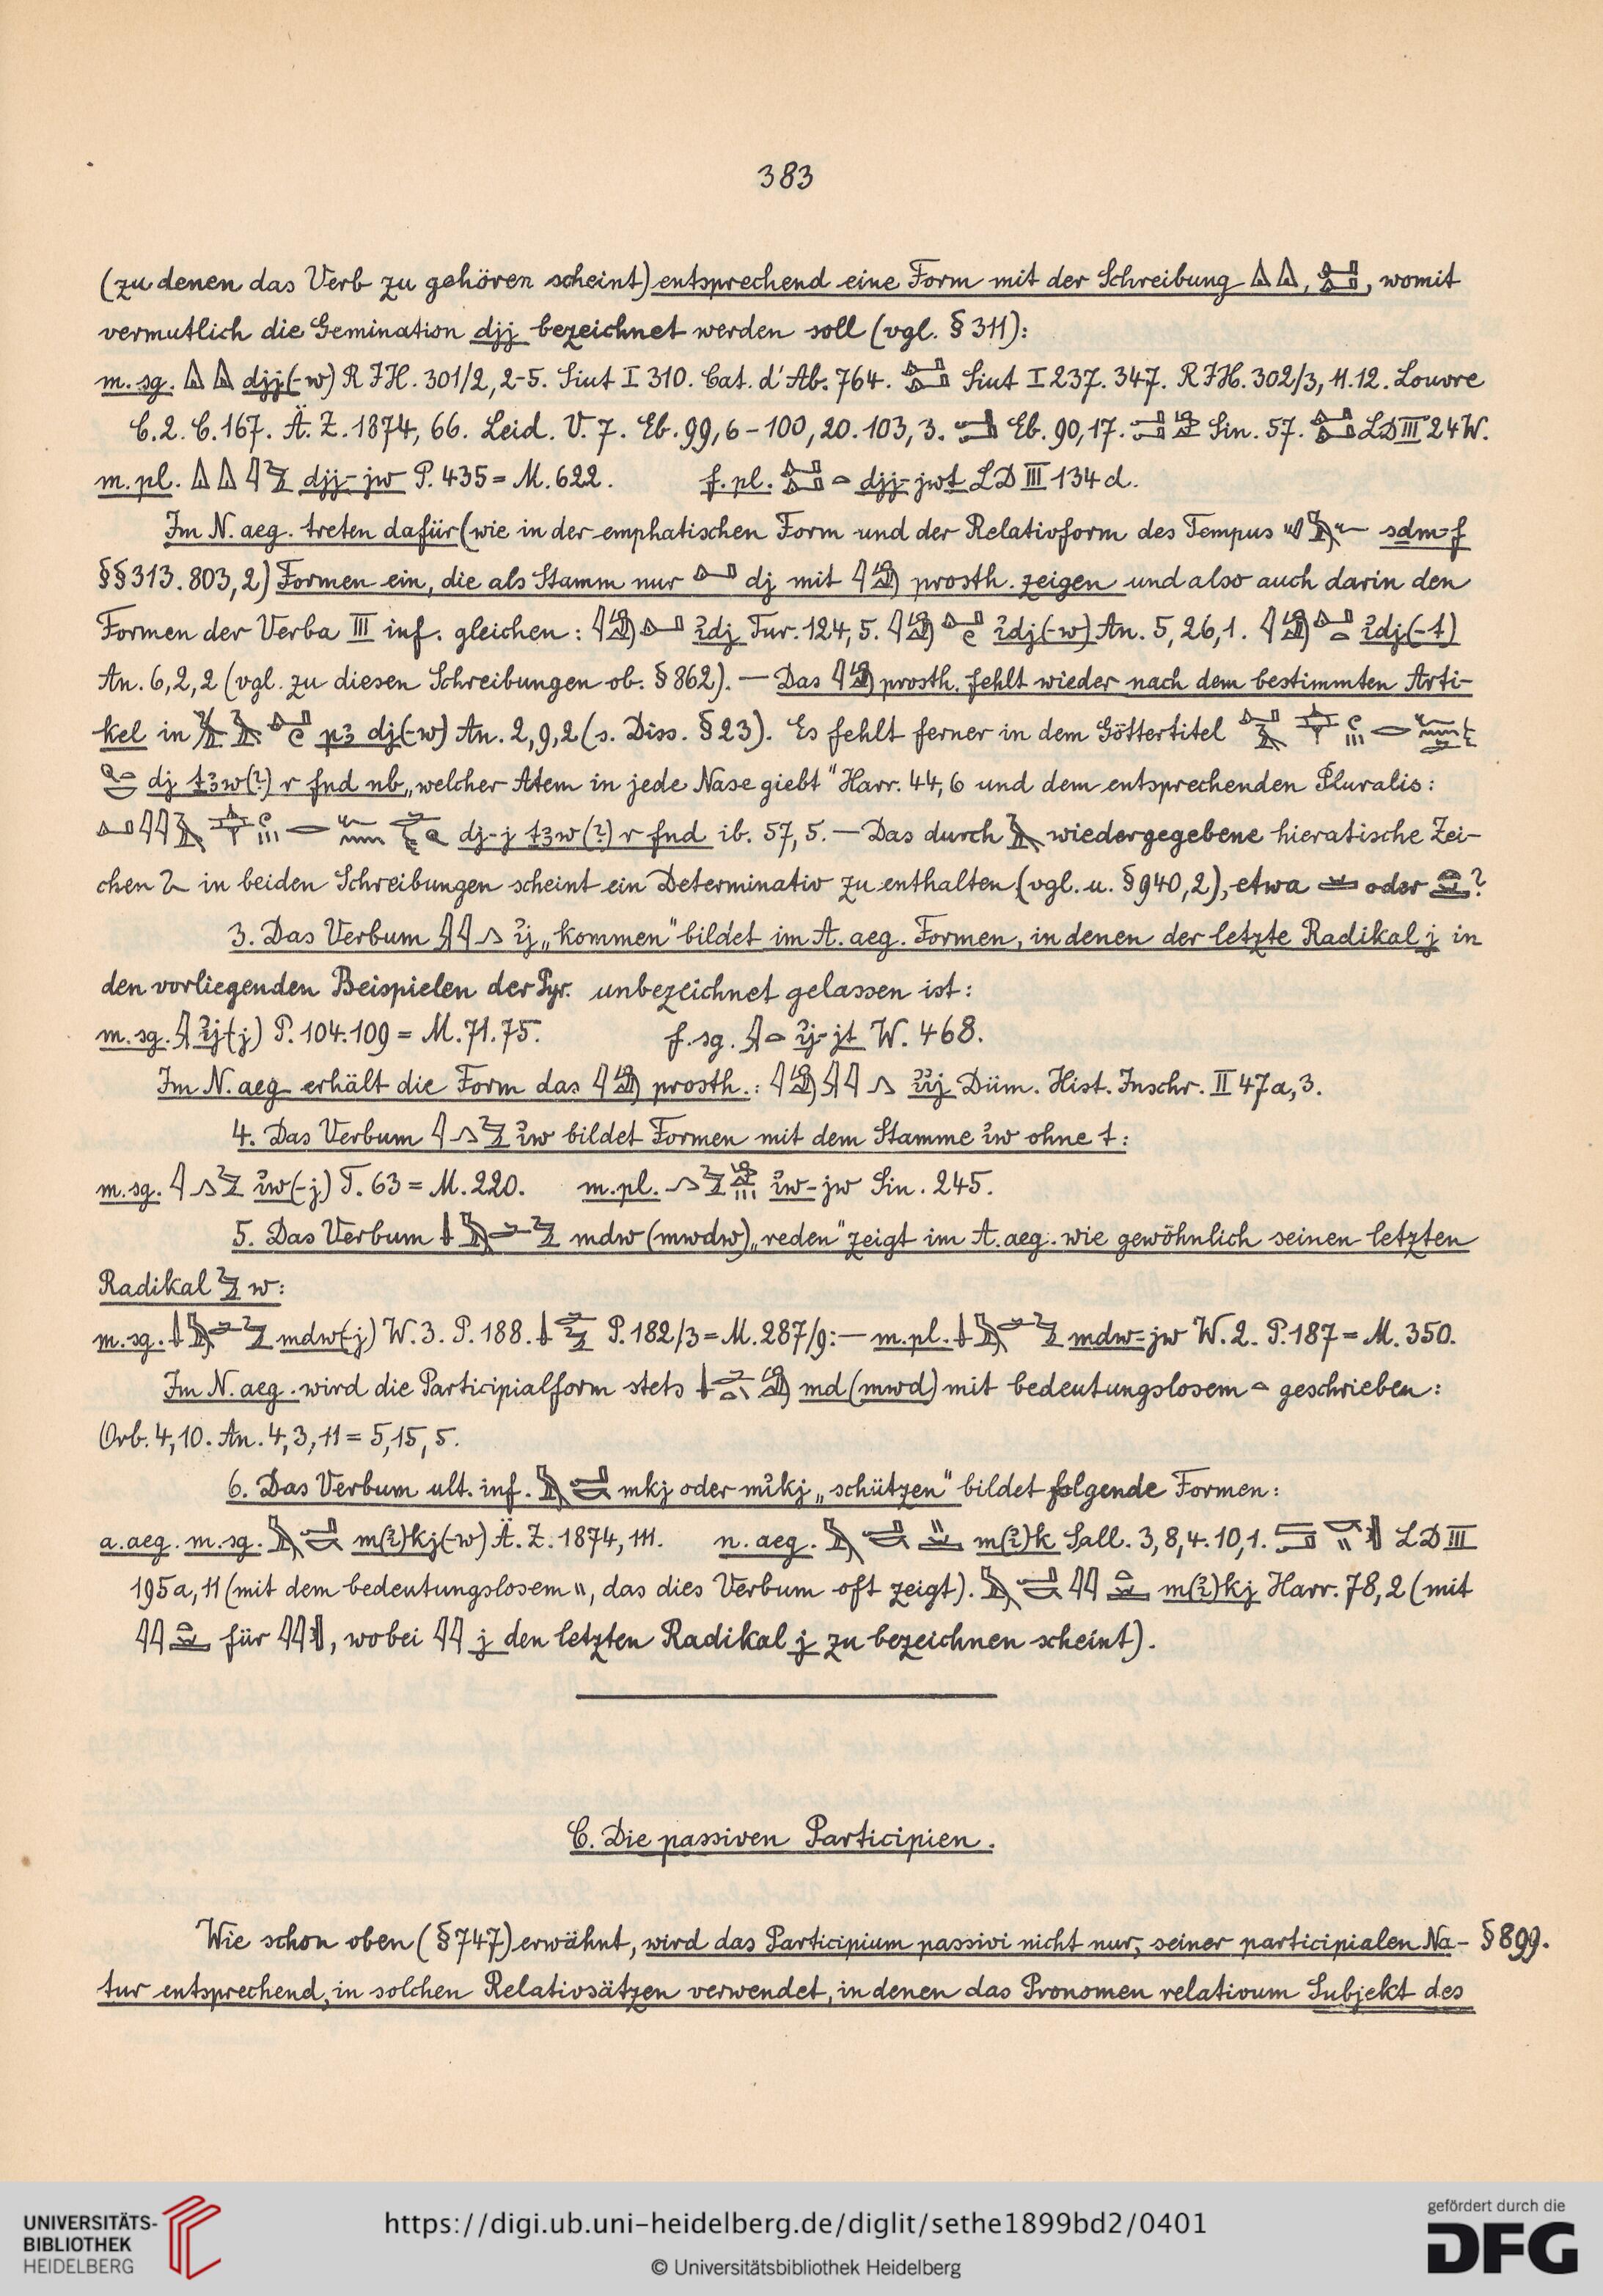 383
(zu denen das Verb zu gehören scheint) entsprechend eine Form mit der Schreibung 𓏙𓏙, womit
vermutlich die Gemination djj bezeichnet werden soll (vgl. § 311):
m. sg. 𓏙𓏙 djj(-w) R I H. 301/2, 2-5. Siut I 310. Cat. d'Ab. 764. Siut I 237. 347. R I H. 302/3, 11. 12. Louvre
C. 2. C. 167. Ä. Z. 1874, 66. Leid. V. 7. Eb. 99, 6 - 100, 20. 103, 3. Eb. 90, 17. Sin. 57. LD III 24 W.
m. pl. 𓏙𓏙𓇋𓅱 djj-jw P. 435 = M. 622. f. pl. djj-jwt LD III 134 d.
Im N. aeg. treten dafür (wie in der emphatischen Form und der Relativform des Tempus sdm-f
§§ 313. 803, 2) Formen ein, die als Stamm nur dj mit prosth. zeigen und also auch darin den
Formen der Verba III inf. gleichen: ꞽdj Tur. 124, 5. ꞽdj(-w) An. 5, 26, 1. ꞽdj(-t)
An. 6, 2, 2 (vgl. zu diesen Schreibungen ob. § 862). — Das prosth. fehlt wieder nach dem bestimmten Arti-
kel in pꜣ dj(-w) An. 2, 9, 2 (s. Diss. § 23). Es fehlt ferner in dem Göttertitel
dj tꜣw(?) r fnd nb „welcher Atem in jede Nase giebt" Harr. 44, 6 und dem entsprechenden Pluralis:
dj-j tꜣw(?) r fnd ib. 57, 5. — Das durch 𓅓 wiedergegebene hieratische Zei-
chen in beiden Schreibungen scheint ein Determinativ zu enthalten (vgl. u. § 940, 2), etwa oder ?
3. Das Verbum 𓇋𓇋𓂻 ꞽj „kommen" bildet im A. aeg. Formen, in denen der letzte Radikal j in
den vorliegenden Beispielen der Pyr. unbezeichnet gelassen ist:
m. sg. ꞽj(-j) P. 104. 109 = M. 71. 75. f. sg. ꞽj-jt W. 468.
Im N. aeg. erhält die Form das prosth.: ꞽꞽj Düm. Hist. Inschr. II 47 a, 3.
4. Das Verbum 𓇋𓂻𓅱 ꞽw bildet Formen mit dem Stamme ꞽw ohne t:
m. sg. 𓇋𓂻𓅱 ꞽw(-j) T. 63 = M. 220. m. pl. ꞽw-jw Sin. 245.
5. Das Verbum mdw (mwdw) „reden" zeigt im A. aeg. wie gewöhnlich seinen letzten
Radikal 𓅱 w:
m. sg. mdw(-j) W. 3. P. 188. P. 182/3 = M. 287/9: — m. pl. mdw-jw W. 2. P. 187 = M. 350.
Im N. aeg. wird die Participialform stets md (mwd) mit bedeutungslosem 𓏏 geschrieben:
Orb. 4, 10. An. 4, 3, 11 = 5, 15, 5.
6. Das Verbum ult. inf. mkj oder mꞽkj „schützen" bildet folgende Formen:
a. aeg. m. sg. m(ꞽ)kj(-w) Ä. Z. 1874, 111. n. aeg. m(ꞽ)k Sall. 3, 8, 4. 10, 1. LD III
195 a, 11 (mit dem bedeutungslosem 𓏭, das dies Verbum oft zeigt). m(ꞽ)kj Harr. 78, 2 (mit
für , wobei 𓇋𓇋 j den letzten Radikal j zu bezeichnen scheint).
C. Die passiven Participien.
Wie schon oben (§ 747) erwähnt, wird das Participium passivi nicht nur, seiner participialen Na- § 899.
tur entsprechend, in solchen Relativsätzen verwendet, in denen das Pronomen relativum Subjekt des
UNIVERSITÄTS-
BIBLIOTHEK
HEIDELBERG
https://digi.ub.uni-heidelberg.de/diglit/sethe1899bd2/0401
© Universitätsbibliothek Heidelberg
gefördert durch die
DFG